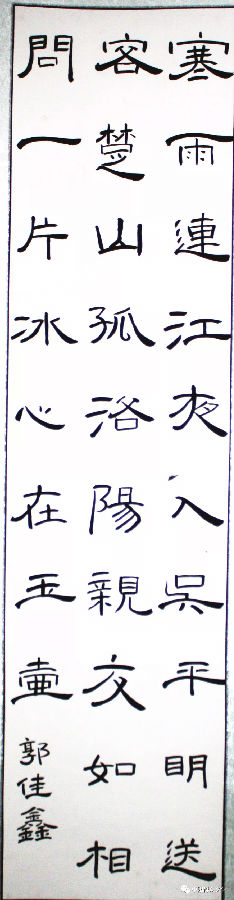 寒雨連江夜入吳平明送
客楚山孤洛陽親友如相
問一片冰心在玉壺
郭佳鑫